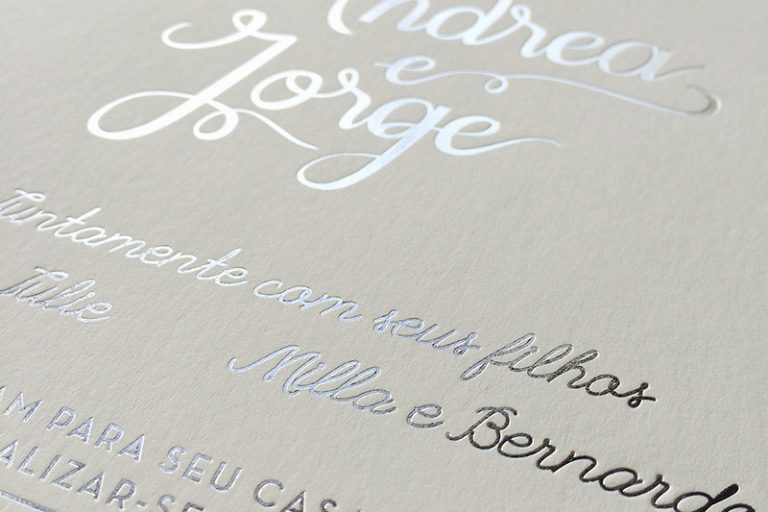 Andrea
e
Jorge
Juntamente com seus filhos
Julie Milla e Bernardo
AM PARA SEU CASA
ALIZAR-SE